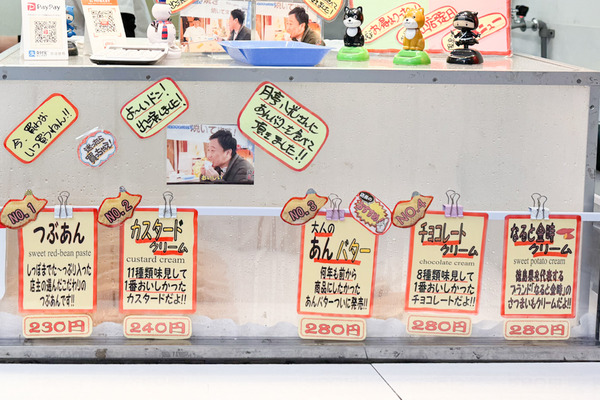 PayPay
今、買わな
いつ買うねん!!
よ〜いドン!
に出演しました!
月亭八光さんに
あんバターを食べて
頂きました!!
No.1
つぶあん
sweet red-bean paste
しっぽまでた〜っぷり入った
店主の選んだこだわりの
つぶあんです!!
230円
No.2
カスタード
クリーム
custard cream
11種類味見して
1番おいしかった
カスタードだよ!!
240円
No.3
大人の
あんバター
何年も前から
商品にしたかった
あんバターついに発売!!
280円
No.4
チョコレート
クリーム
chocolate cream
8種類味見して
1番おいしかった
チョコレートだよ!!
280円
なると金時
クリーム
sweet potato cream
徳島県を代表する
ブランド「なると金時」の
さつまいもクリームだよ!!
280円